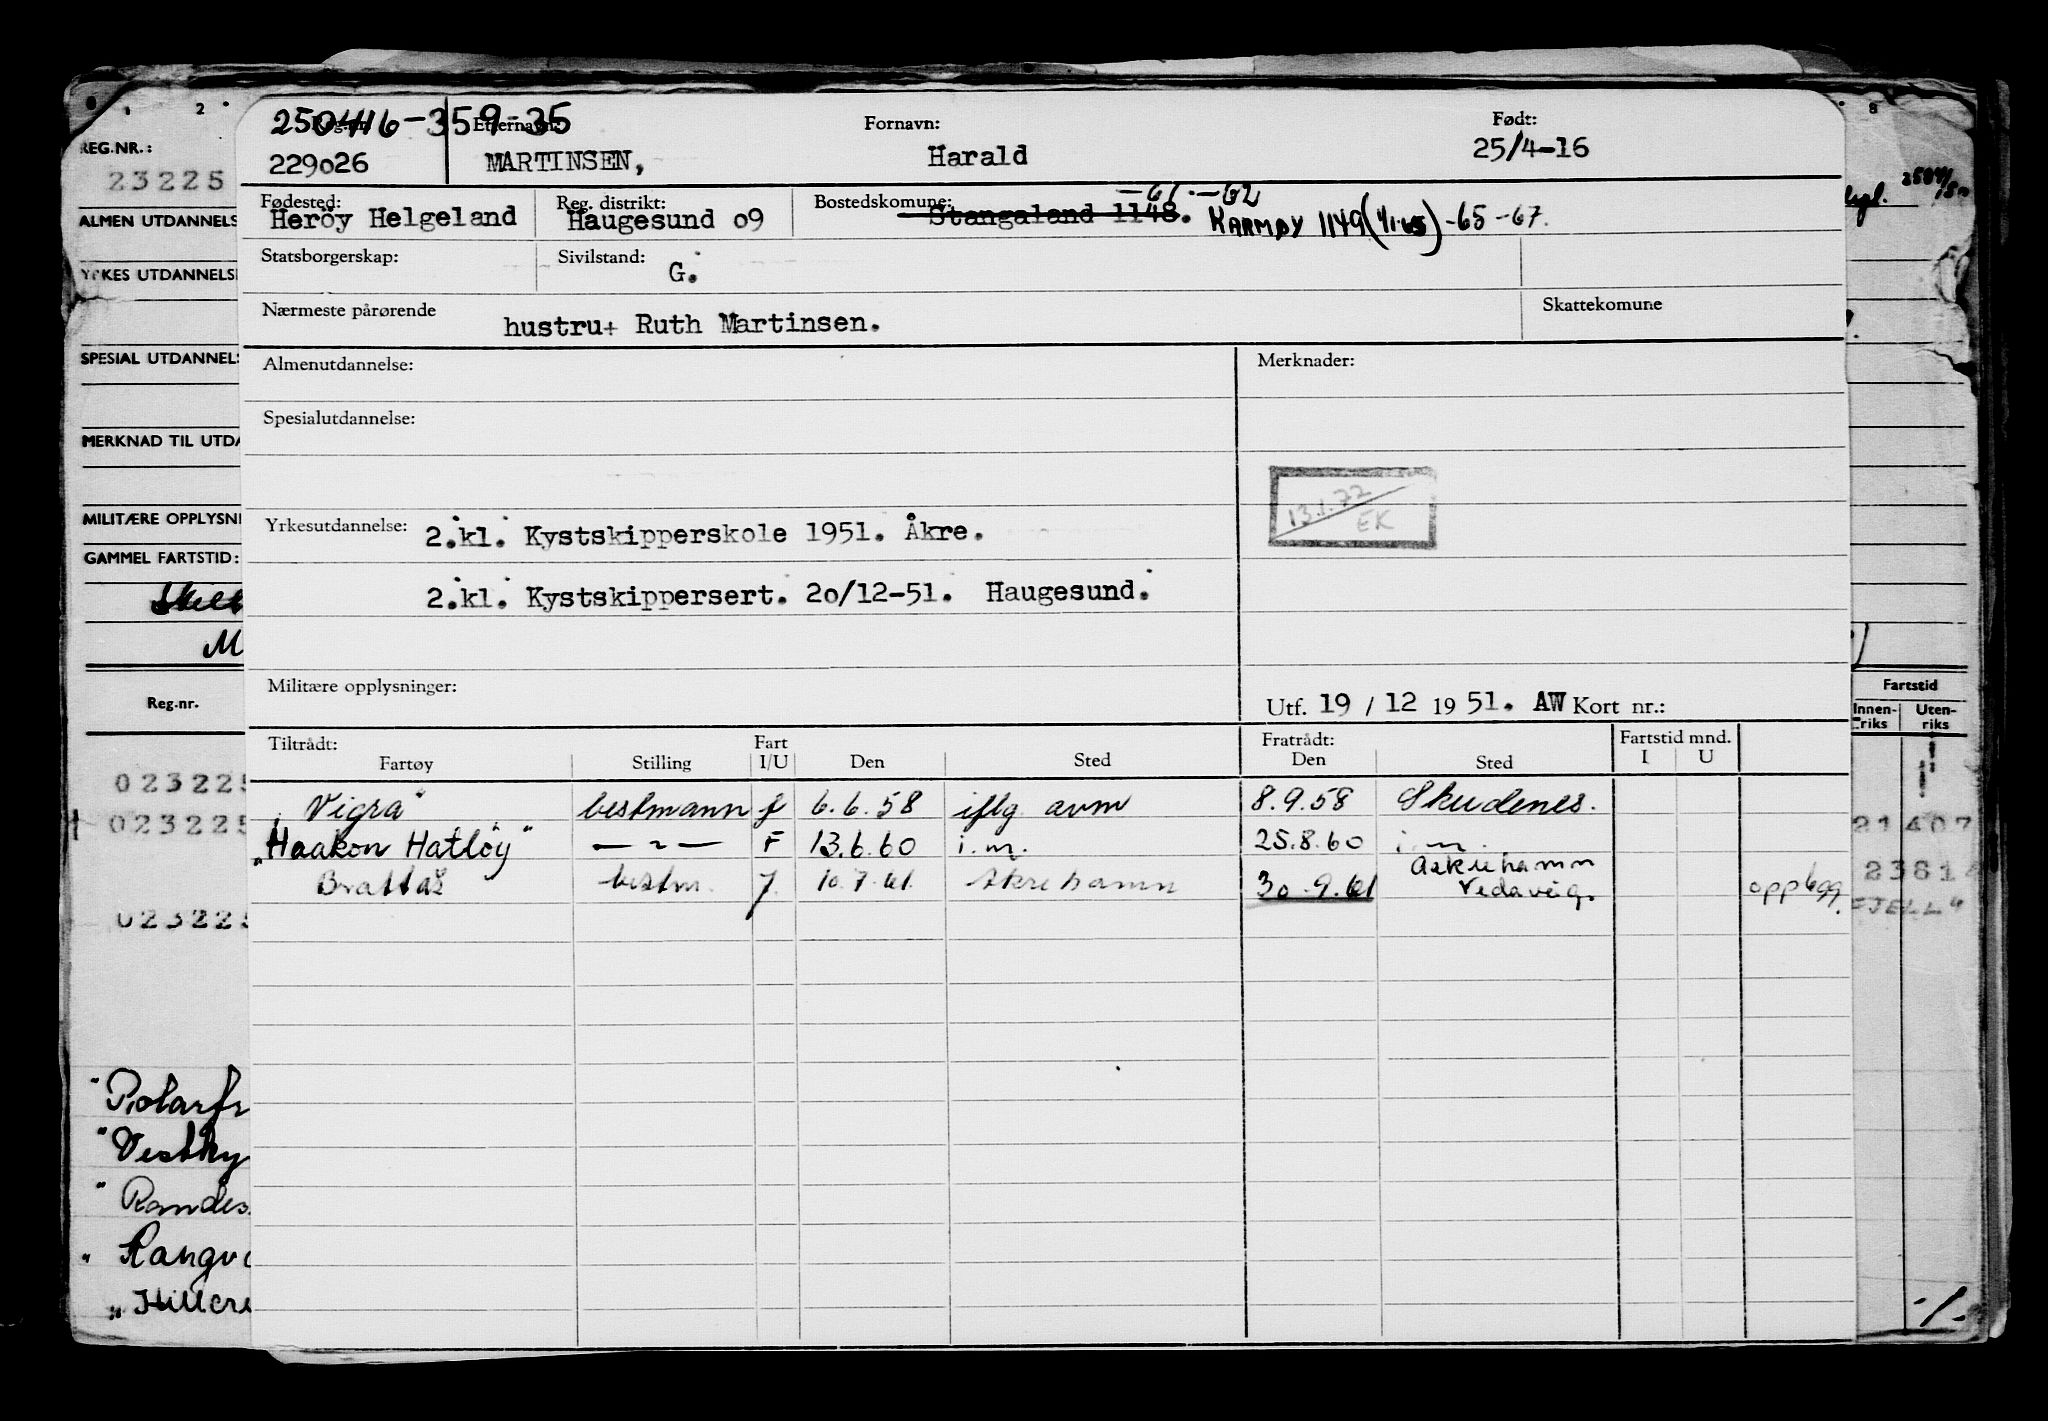 1 2 8
REG.NR.:
23225
ALMEN UTDANNELS
YRKES UTDANNELS
SPESIAL UTDANNELS
MERKNAD TIL UTDA
MILITÆRE OPPLYSNI
GAMMEL FARTSTID:
M
Reg.nr.
023225
023225
023225
"Polarfr
"Vestky
"Randes
"Rangv
"Hillcre
250416-359-35
Reg.nr. Etternavn: Fornavn: Født:
229026 MARTINSEN, Harald 25/4-16
Fødested: Reg. distrikt: Bostedskomune: -61.-62
Heröy Helgeland Haugesund o9 Stangaland 1148. KARMØY 1149 (1/1 65) -65 -67.
Statsborgerskap: Sivilstand: G.
Nærmeste pårørende Skattekomune
hustru+ Ruth Martinsen.
Almenutdannelse: Merknader:
Spesialutdannelse:
13.1.72
EK
Yrkesutdannelse: 2.kl. Kystskipperskole 1951. Åkre.
2.kl. Kystskippersert. 2o/12-51. Haugesund.
Militære opplysninger:
Utf. 19 / 12 19 51. AW Kort nr.:
Tiltrådt: Fart Fratrådt: Fartstid mnd.
Fartøy Stilling I/U Den Sted Den Sted I U
"Vigra" bestmann f 6.6.58 iflg avm 8.9.58 Skudenes.
"Haakon Hatløy" -"- F 13.6.60 i.m. 25.8.60 i.m.
Brattås bestm. 10.7.61. Åkrehamn 30.9.61 Vedavåg. opplagg.
Fartstid
Innen-
riks
Uten-
riks
21407
2381
FJELL"
-/-